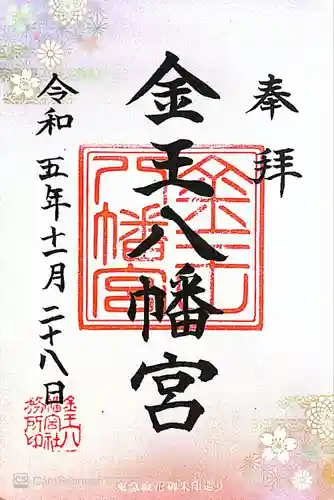 奉拝
金王八幡宮
令和五年十一月二十八日
金王八幡宮
金王八
幡宮社
務所印
東急線花御朱印巡り
CamScanner